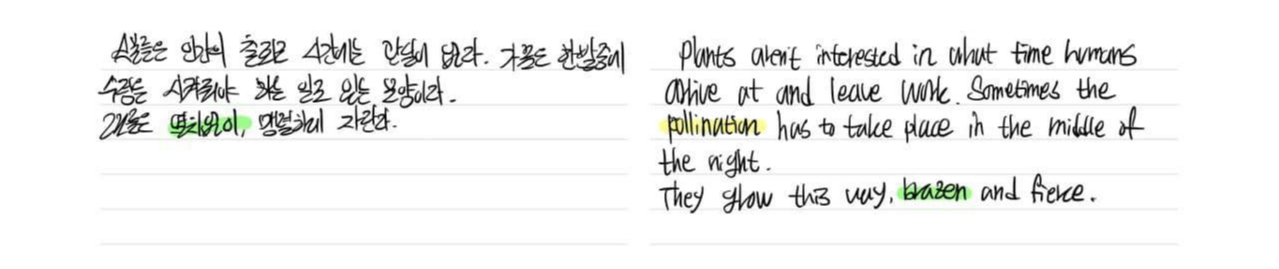 식물들은 인간의 출퇴근 시간에는 관심이 없다. 가끔은 한밤중에
수정을 시켜줘야 하는 일도 있는 모양이다.
그들은 염치없이, 맹렬하게 자란다.
Plants aren't interested in what time humans
arrive at and leave work. Sometimes the
pollination has to take place in the middle of
the night.
They grow this way, brazen and fierce.